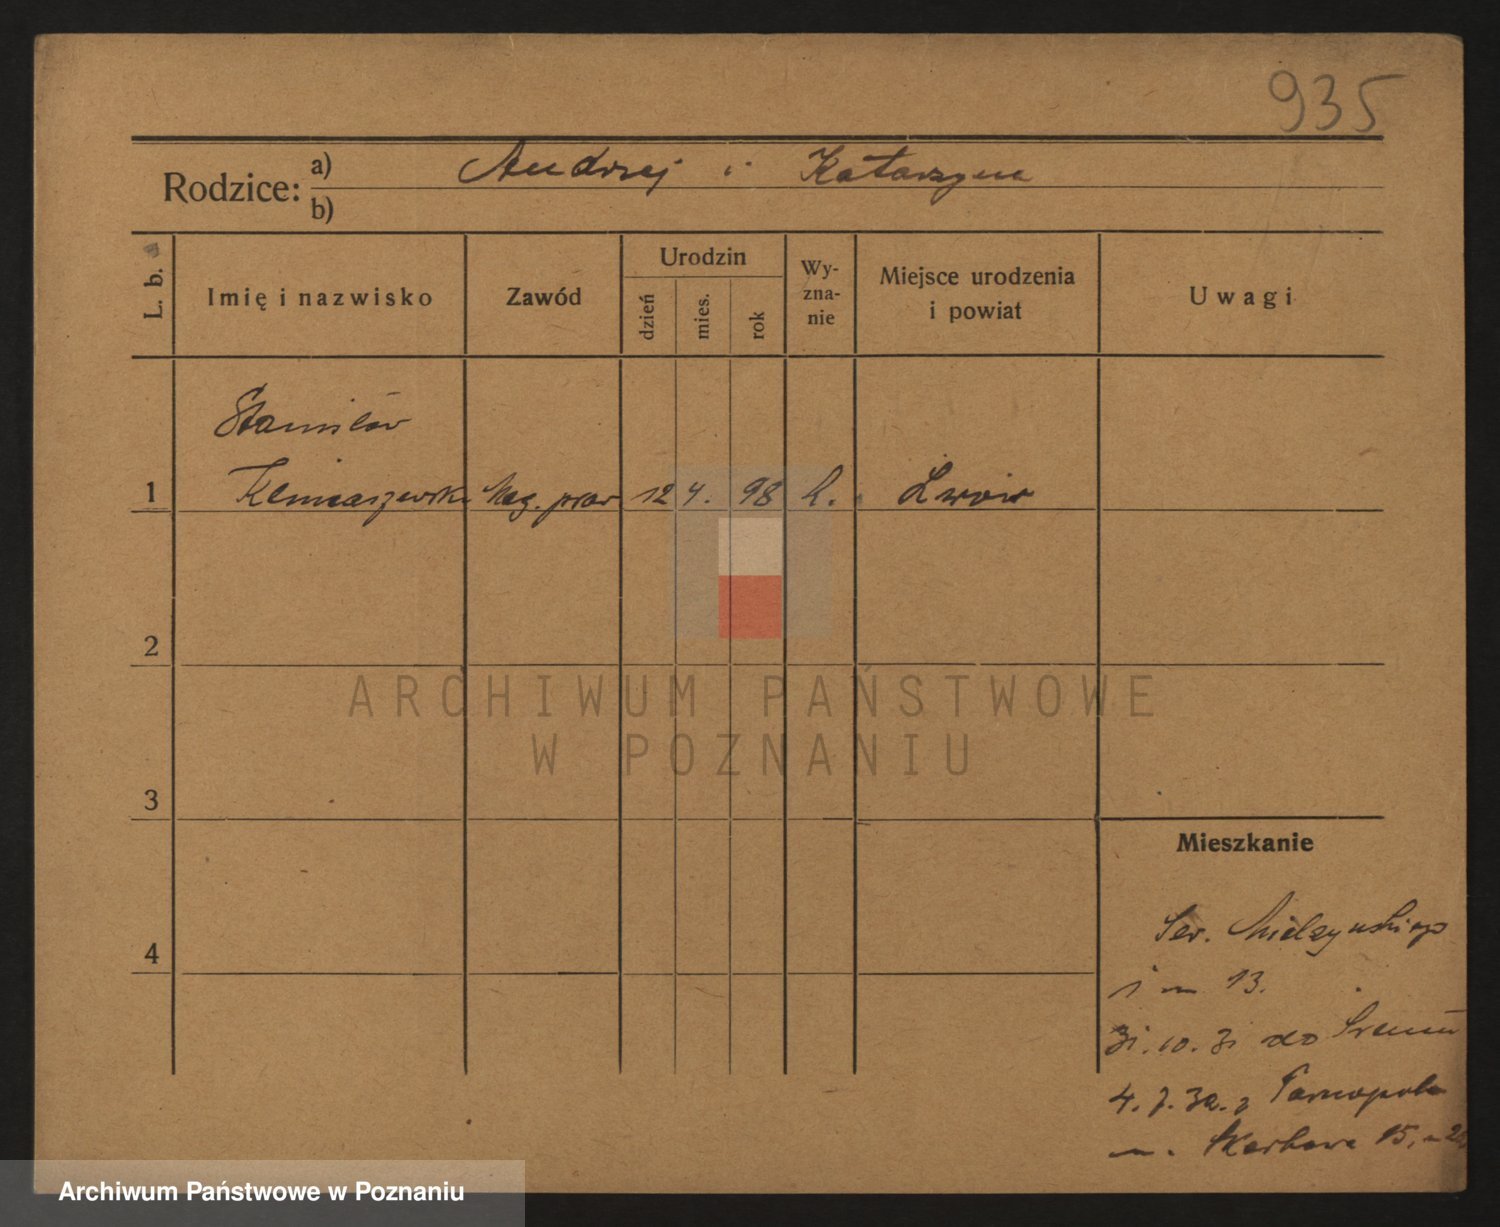 935
Rodzice: a) Andrzej i Katarzyna
b)
L. b.
Imię i nazwisko
Zawód
Urodzin
dzień
mies.
rok
Wy-
zna-
nie
Miejsce urodzenia
i powiat
Uwagi
Stanisław
1 Mag. praw 12 4. 98 Lwów
2
3
4
Mieszkanie
Sew. Mielżyńskiego
1 m 13.
31.10.31 do Śremu
4. 7. 32. z Tarnopola
Skarbowa 15,
ARCHIWUM PAŃSTWOWE
W POZNANIU
Archiwum Państwowe w Poznaniu